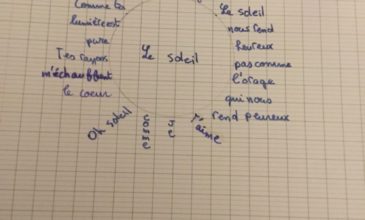 Comme ta
lumière est
pure
Tes rayons
m'échauffent
le coeur
Le soleil
Le soleil
nous rend
heureux
pas comme
l'orage
qui nous
rend peureux
Oh soleil
comme
je
t'aime